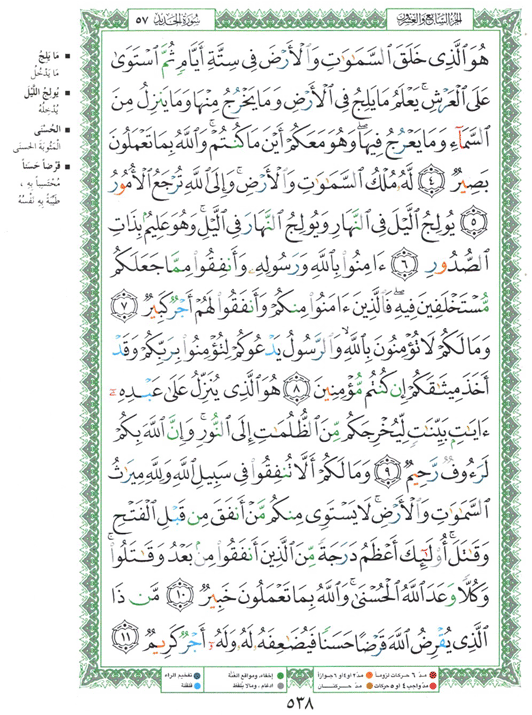 الجزء السابع والعشرون
سورة الحديد ٥٧
هُوَ الَّذِى خَلَقَ السَّمَٰوَٰتِ وَالْأَرْضَ فِى سِتَّةِ أَيَّامٍ ثُمَّ اسْتَوَىٰ
عَلَى الْعَرْشِ ۚ يَعْلَمُ مَا يَلِجُ فِى الْأَرْضِ وَمَا يَخْرُجُ مِنْهَا وَمَا يَنزِلُ مِنَ
السَّمَآءِ وَمَا يَعْرُجُ فِيهَا ۖ وَهُوَ مَعَكُمْ أَيْنَ مَا كُنتُمْ ۚ وَاللَّهُ بِمَا تَعْمَلُونَ
بَصِيرٌ ٤ لَّهُ مُلْكُ السَّمَٰوَٰتِ وَالْأَرْضِ ۚ وَإِلَى اللَّهِ تُرْجَعُ الْأُمُورُ
٥ يُولِجُ الَّيْلَ فِى النَّهَارِ وَيُولِجُ النَّهَارَ فِى الَّيْلِ ۚ وَهُوَ عَلِيمٌۢ بِذَاتِ
الصُّدُورِ ٦ ءَامِنُوا۟ بِاللَّهِ وَرَسُولِهِۦ وَأَنفِقُوا۟ مِمَّا جَعَلَكُم
مُّسْتَخْلَفِينَ فِيهِ ۖ فَالَّذِينَ ءَامَنُوا۟ مِنكُمْ وَأَنفَقُوا۟ لَهُمْ أَجْرٌ كَبِيرٌ ٧
وَمَا لَكُمْ لَا تُؤْمِنُونَ بِاللَّهِ ۙ وَالرَّسُولُ يَدْعُوكُمْ لِتُؤْمِنُوا۟ بِرَبِّكُمْ وَقَدْ
أَخَذَ مِيثَٰقَكُمْ إِن كُنتُم مُّؤْمِنِينَ ٨ هُوَ الَّذِى يُنَزِّلُ عَلَىٰ عَبْدِهِۦٓ
ءَايَٰتٍۭ بَيِّنَٰتٍ لِّيُخْرِجَكُم مِّنَ الظُّلُمَٰتِ إِلَى النُّورِ ۚ وَإِنَّ اللَّهَ بِكُمْ
لَرَءُوفٌ رَّحِيمٌ ٩ وَمَا لَكُمْ أَلَّا تُنفِقُوا۟ فِى سَبِيلِ اللَّهِ وَلِلَّهِ مِيرَٰثُ
السَّمَٰوَٰتِ وَالْأَرْضِ ۚ لَا يَسْتَوِى مِنكُم مَّنْ أَنفَقَ مِن قَبْلِ الْفَتْحِ
وَقَٰتَلَ ۚ أُو۟لَٰٓئِكَ أَعْظَمُ دَرَجَةً مِّنَ الَّذِينَ أَنفَقُوا۟ مِنۢ بَعْدُ وَقَٰتَلُوا۟ ۚ
وَكُلًّا وَعَدَ اللَّهُ الْحُسْنَىٰ ۚ وَاللَّهُ بِمَا تَعْمَلُونَ خَبِيرٌ ١٠ مَّن ذَا
الَّذِى يُقْرِضُ اللَّهَ قَرْضًا حَسَنًا فَيُضَٰعِفَهُۥ لَهُۥ وَلَهُۥٓ أَجْرٌ كَرِيمٌ ١١
مَا يَلِجُ
مَا يَدْخُلُ
يُولِجُ اللَّيْلَ
يُدْخِلُهُ
الْحُسْنَى
الْمَثُوبَةَ الحسنى
قَرْضاً حَسَناً
مُحْتَسِباً بِهِ ،
طَيِّبَةً بِهِ نَفْسُهُ
مدّ ٦ حركات لزوماً مدّ ٢ أو ٤ أو ٦ جوازاً إخفاء، ومواقع الغُنَّة تفخيم الراء
مدّ واجب ٤ أو ٥ حركات مدّ حركتان إدغام، ومالا يُلفظ قلقلة
٥٣٨